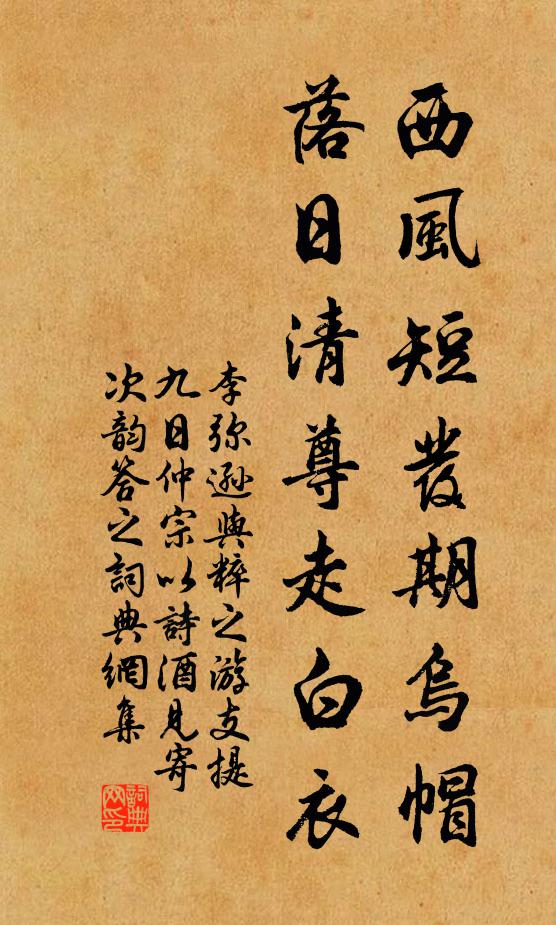 西風短發期烏帽
落日清尊走白衣
李弥遜與粹之游支提
九日仲宗以詩酒見寄
次韵答之詞典網集
詞典
网印